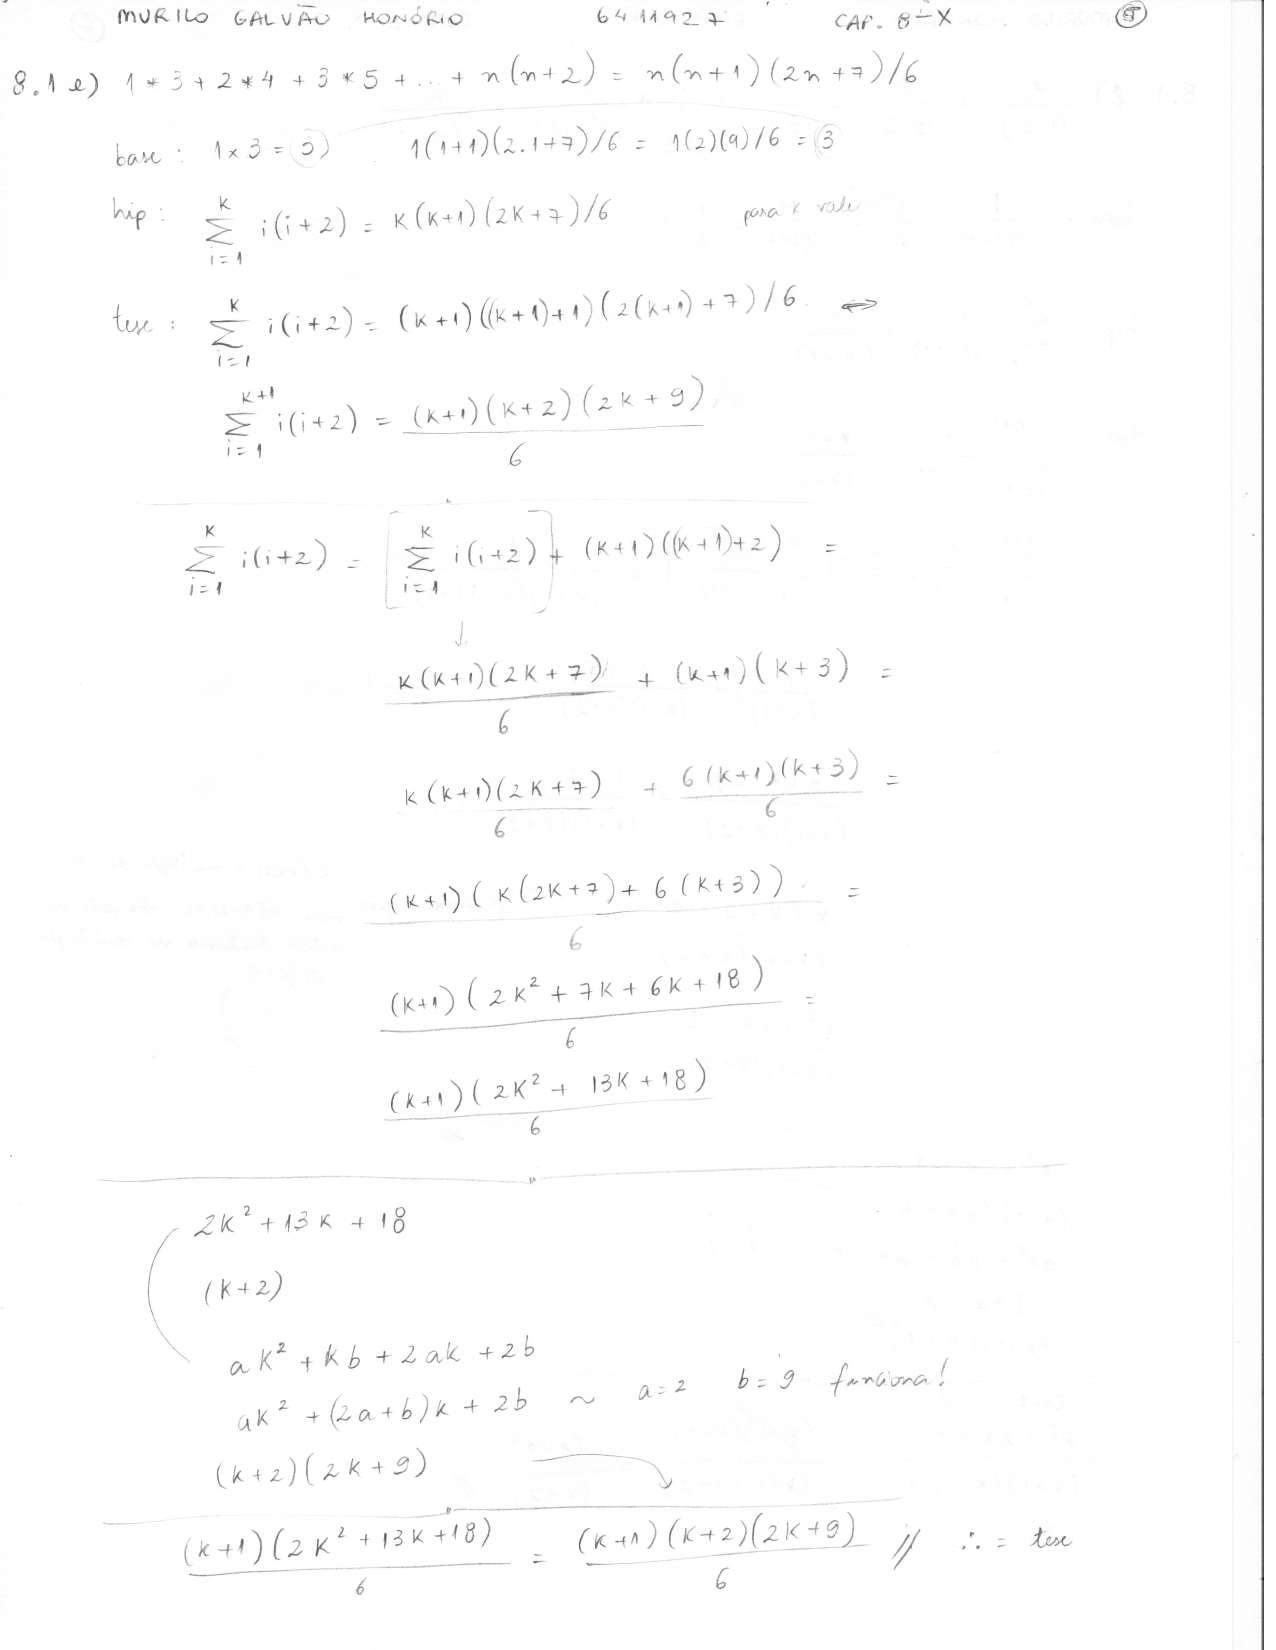 MURILO GALVÃO HONÓRIO 6411927 CAP. 8-X 5
8.1 e) 1 * 3 + 2 * 4 + 3 * 5 + ... + n(n+2) = n(n+1)(2n+7)/6
base : 1 x 3 = 3 1(1+1)(2.1+7)/6 = 1(2)(9)/6 = 3
hip : ∑_{i=1}^{K} i(i+2) = K(K+1)(2K+7)/6 para k vale
tese : ∑_{i=1}^{K} i(i+2) = (K+1)((K+1)+1)(2(K+1)+7)/6 ⇔
∑_{i=1}^{K+1} i(i+2) = (K+1)(K+2)(2K+9) / 6
∑_{i=1}^{K} i(i+2) = [∑_{i=1}^{K} i(i+2)] + (K+1)((K+1)+2) =
↓
K(K+1)(2K+7) / 6 + (K+1)(K+3) =
K(K+1)(2K+7) / 6 + 6(K+1)(K+3) / 6 =
(K+1)(K(2K+7) + 6(K+3)) / 6 =
(K+1)(2K² + 7K + 6K + 18) / 6 =
(K+1)(2K² + 13K + 18) / 6
2K² + 13K + 18
(K+2)
aK² + Kb + 2aK + 2b
aK² + (2a+b)K + 2b ~ a=2 b=9 funciona!
(K+2)(2K+9)
(K+1)(2K² + 13K + 18) / 6 = (K+1)(K+2)(2K+9) / 6 // ∴ = tese